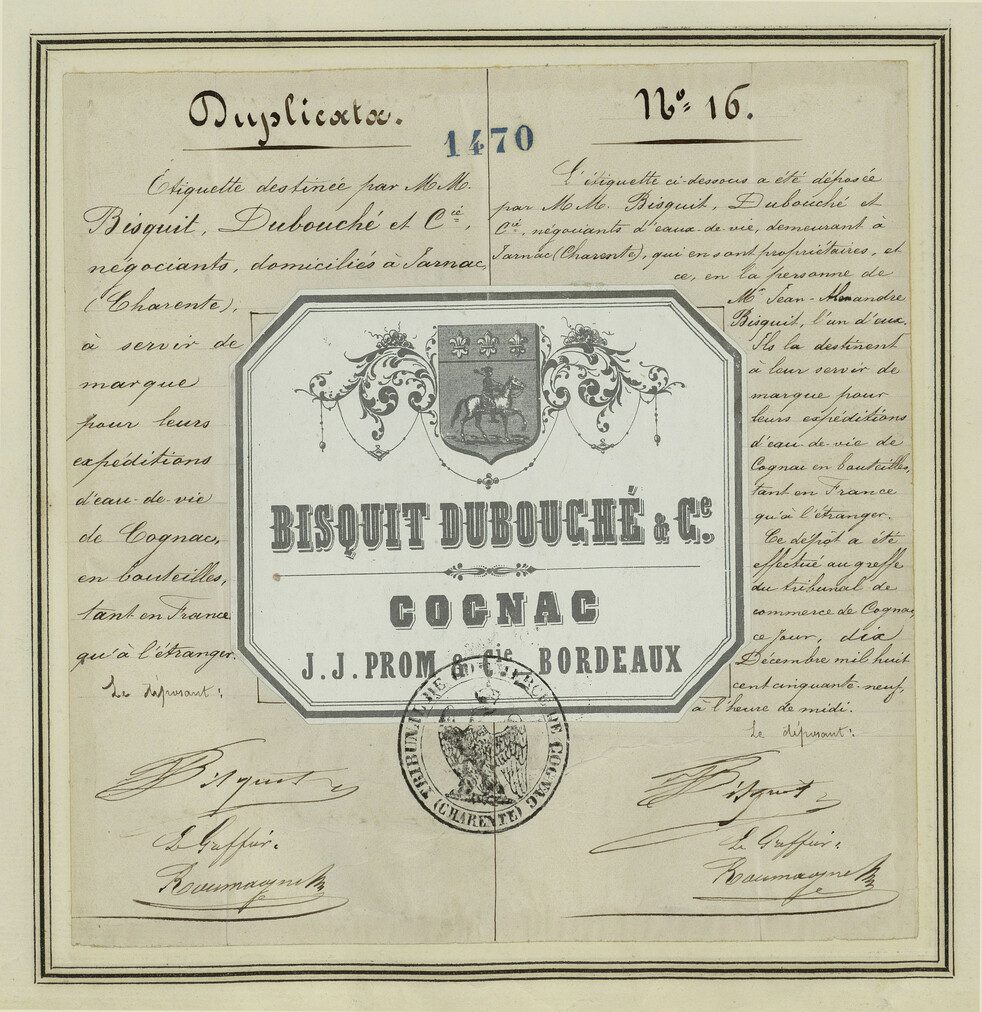 Duplicata.
1470
Etiquette destinée par M.M.
Bisquit, Dubouché et Cie,
négociants, domiciliés à Jarnac
(Charente),
à servir de
marque
pour leurs
expéditions
d'eau-de-vie
de Cognac,
en bouteilles,
tant en France
qu'à l'étranger.
Le déposant:
Bisquit
Le Greffier:
Roumagne
No= 16.
L'étiquette ci-dessous a été déposée
par M.M. Bisquit, Dubouché et
Cie, négociants d'eaux-de-vie, demeurant à
Jarnac (Charente), qui en sont propriétaires, et
ce, en la personne de
Mr Jean-Alexandre
Bisquit, l'un d'eux.
Ils la destinent
à leur servir de
marque pour
leurs expéditions
d'eau-de-vie de
Cognac en bouteilles,
tant en France
qu'à l'étranger.
Ce dépôt a été
effectué au greffe
du tribunal de
commerce de Cognac,
ce jour, dix
Décembre mil huit
cent cinquante-neuf,
à l'heure de midi.
Le déposant:
Bisquit
Le Greffier:
Roumagne
BISQUIT DUBOUCHÉ & Ce.
COGNAC
J.J. PROM & Cie, BORDEAUX
TRIBUNAL DE COMMERCE DE COGNAC
(CHARENTE)